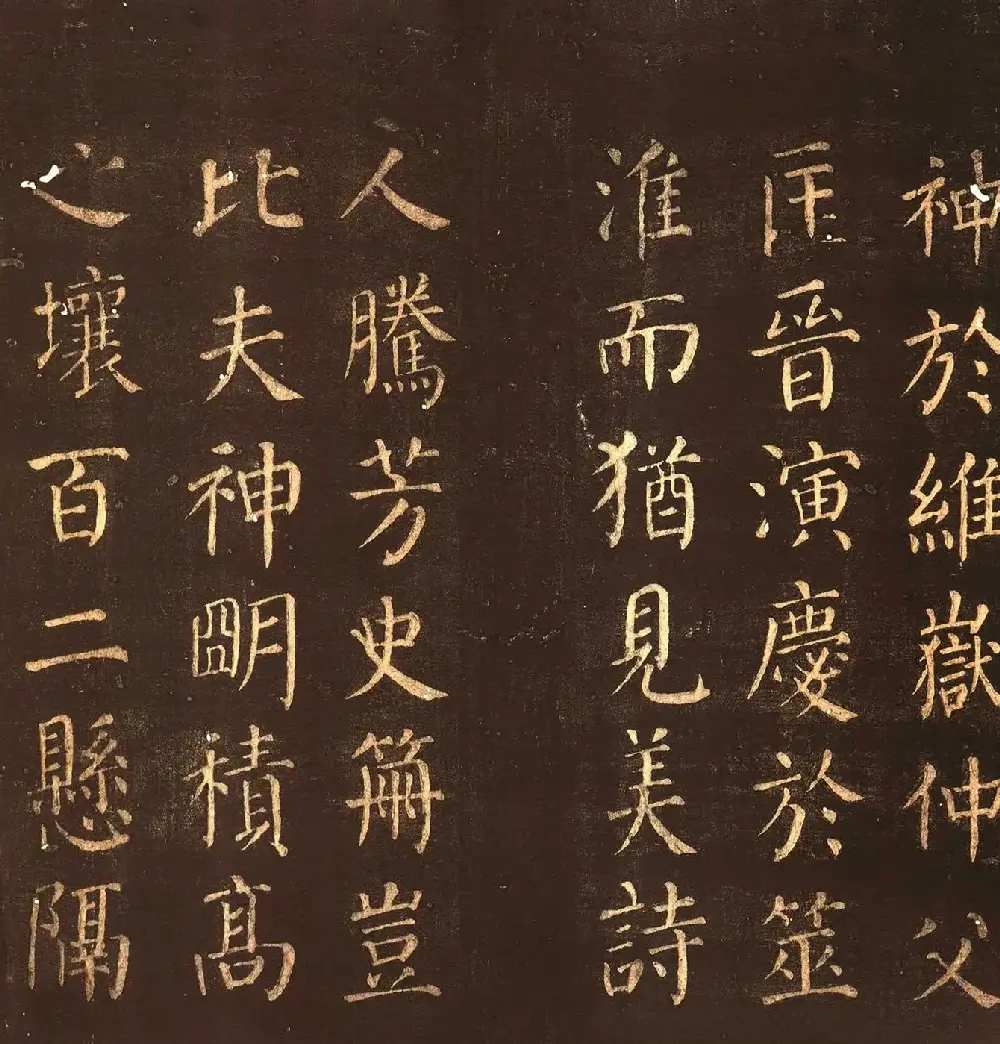 神於維嶽仲父
匡晉演慶於筮
淮而猶見美詩
人騰芳史筞豈
比夫神明積高
之壤百二懸隔